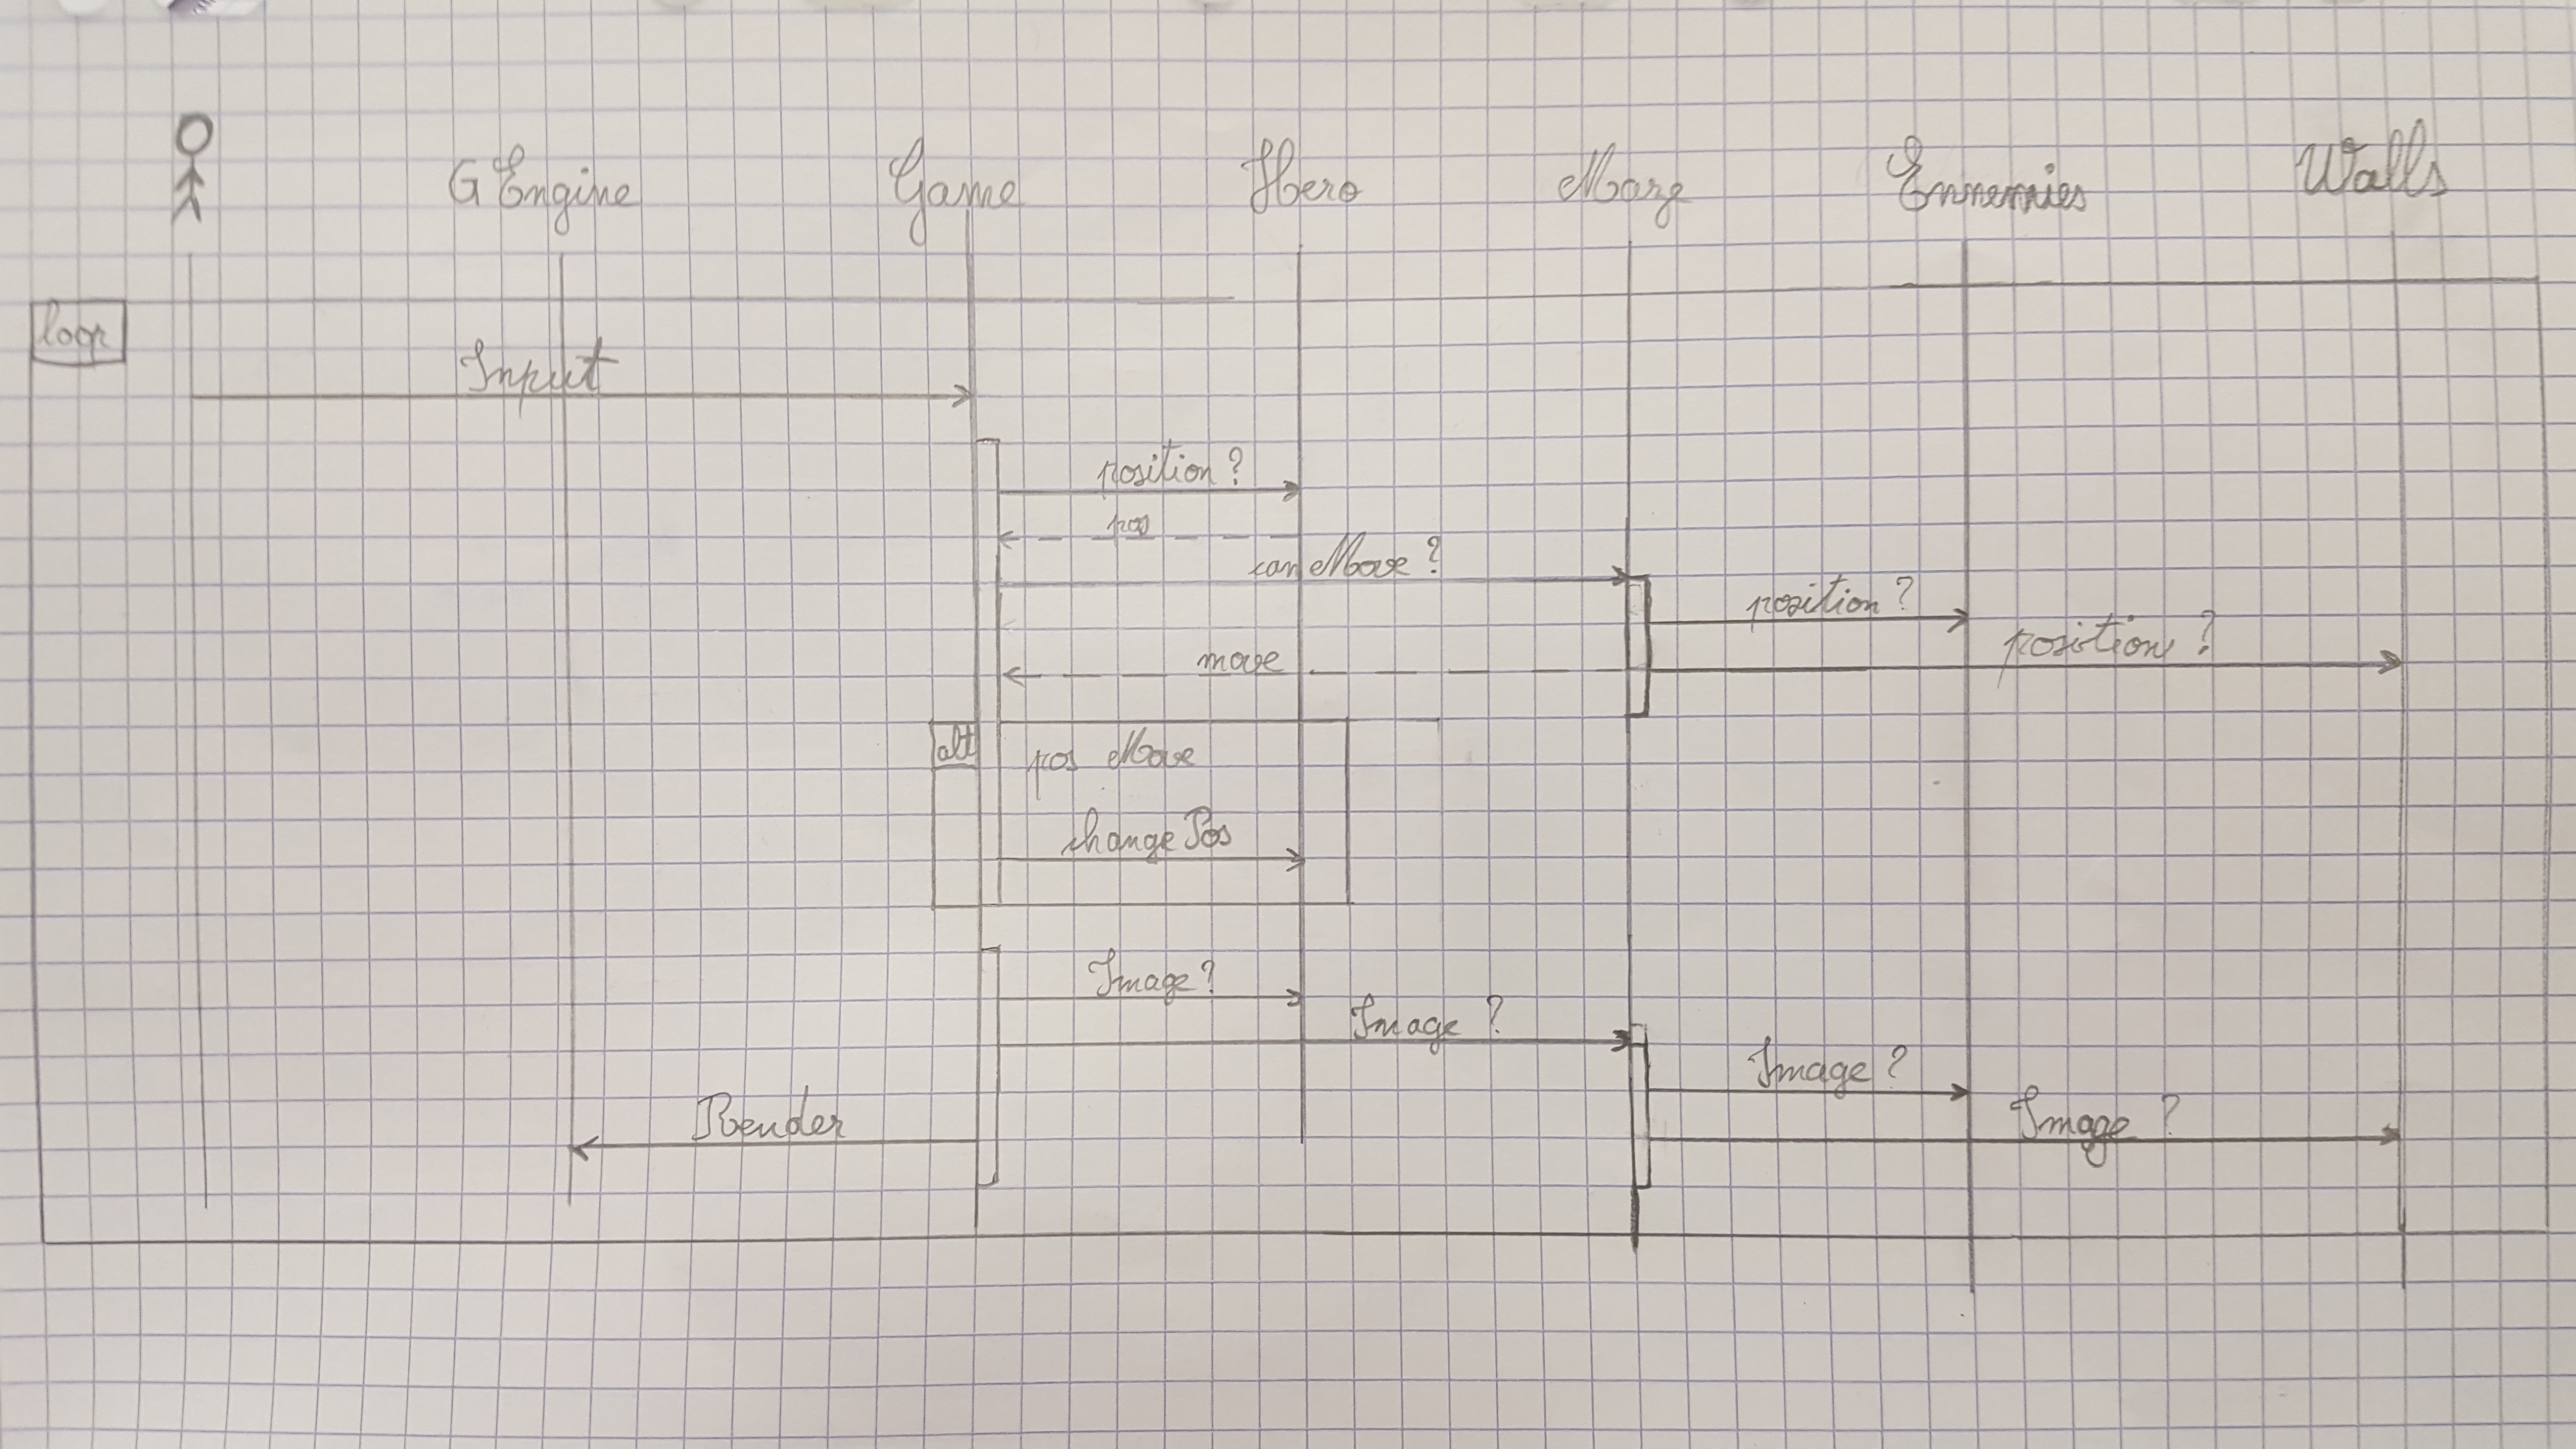 GEngine Game Hero Maze Ennemies Walls
loop
Input
position ?
pos
canMove ?
position ?
position ?
move
alt
pos Move
changePos
Image ?
Image ?
Image ?
Image ?
Render